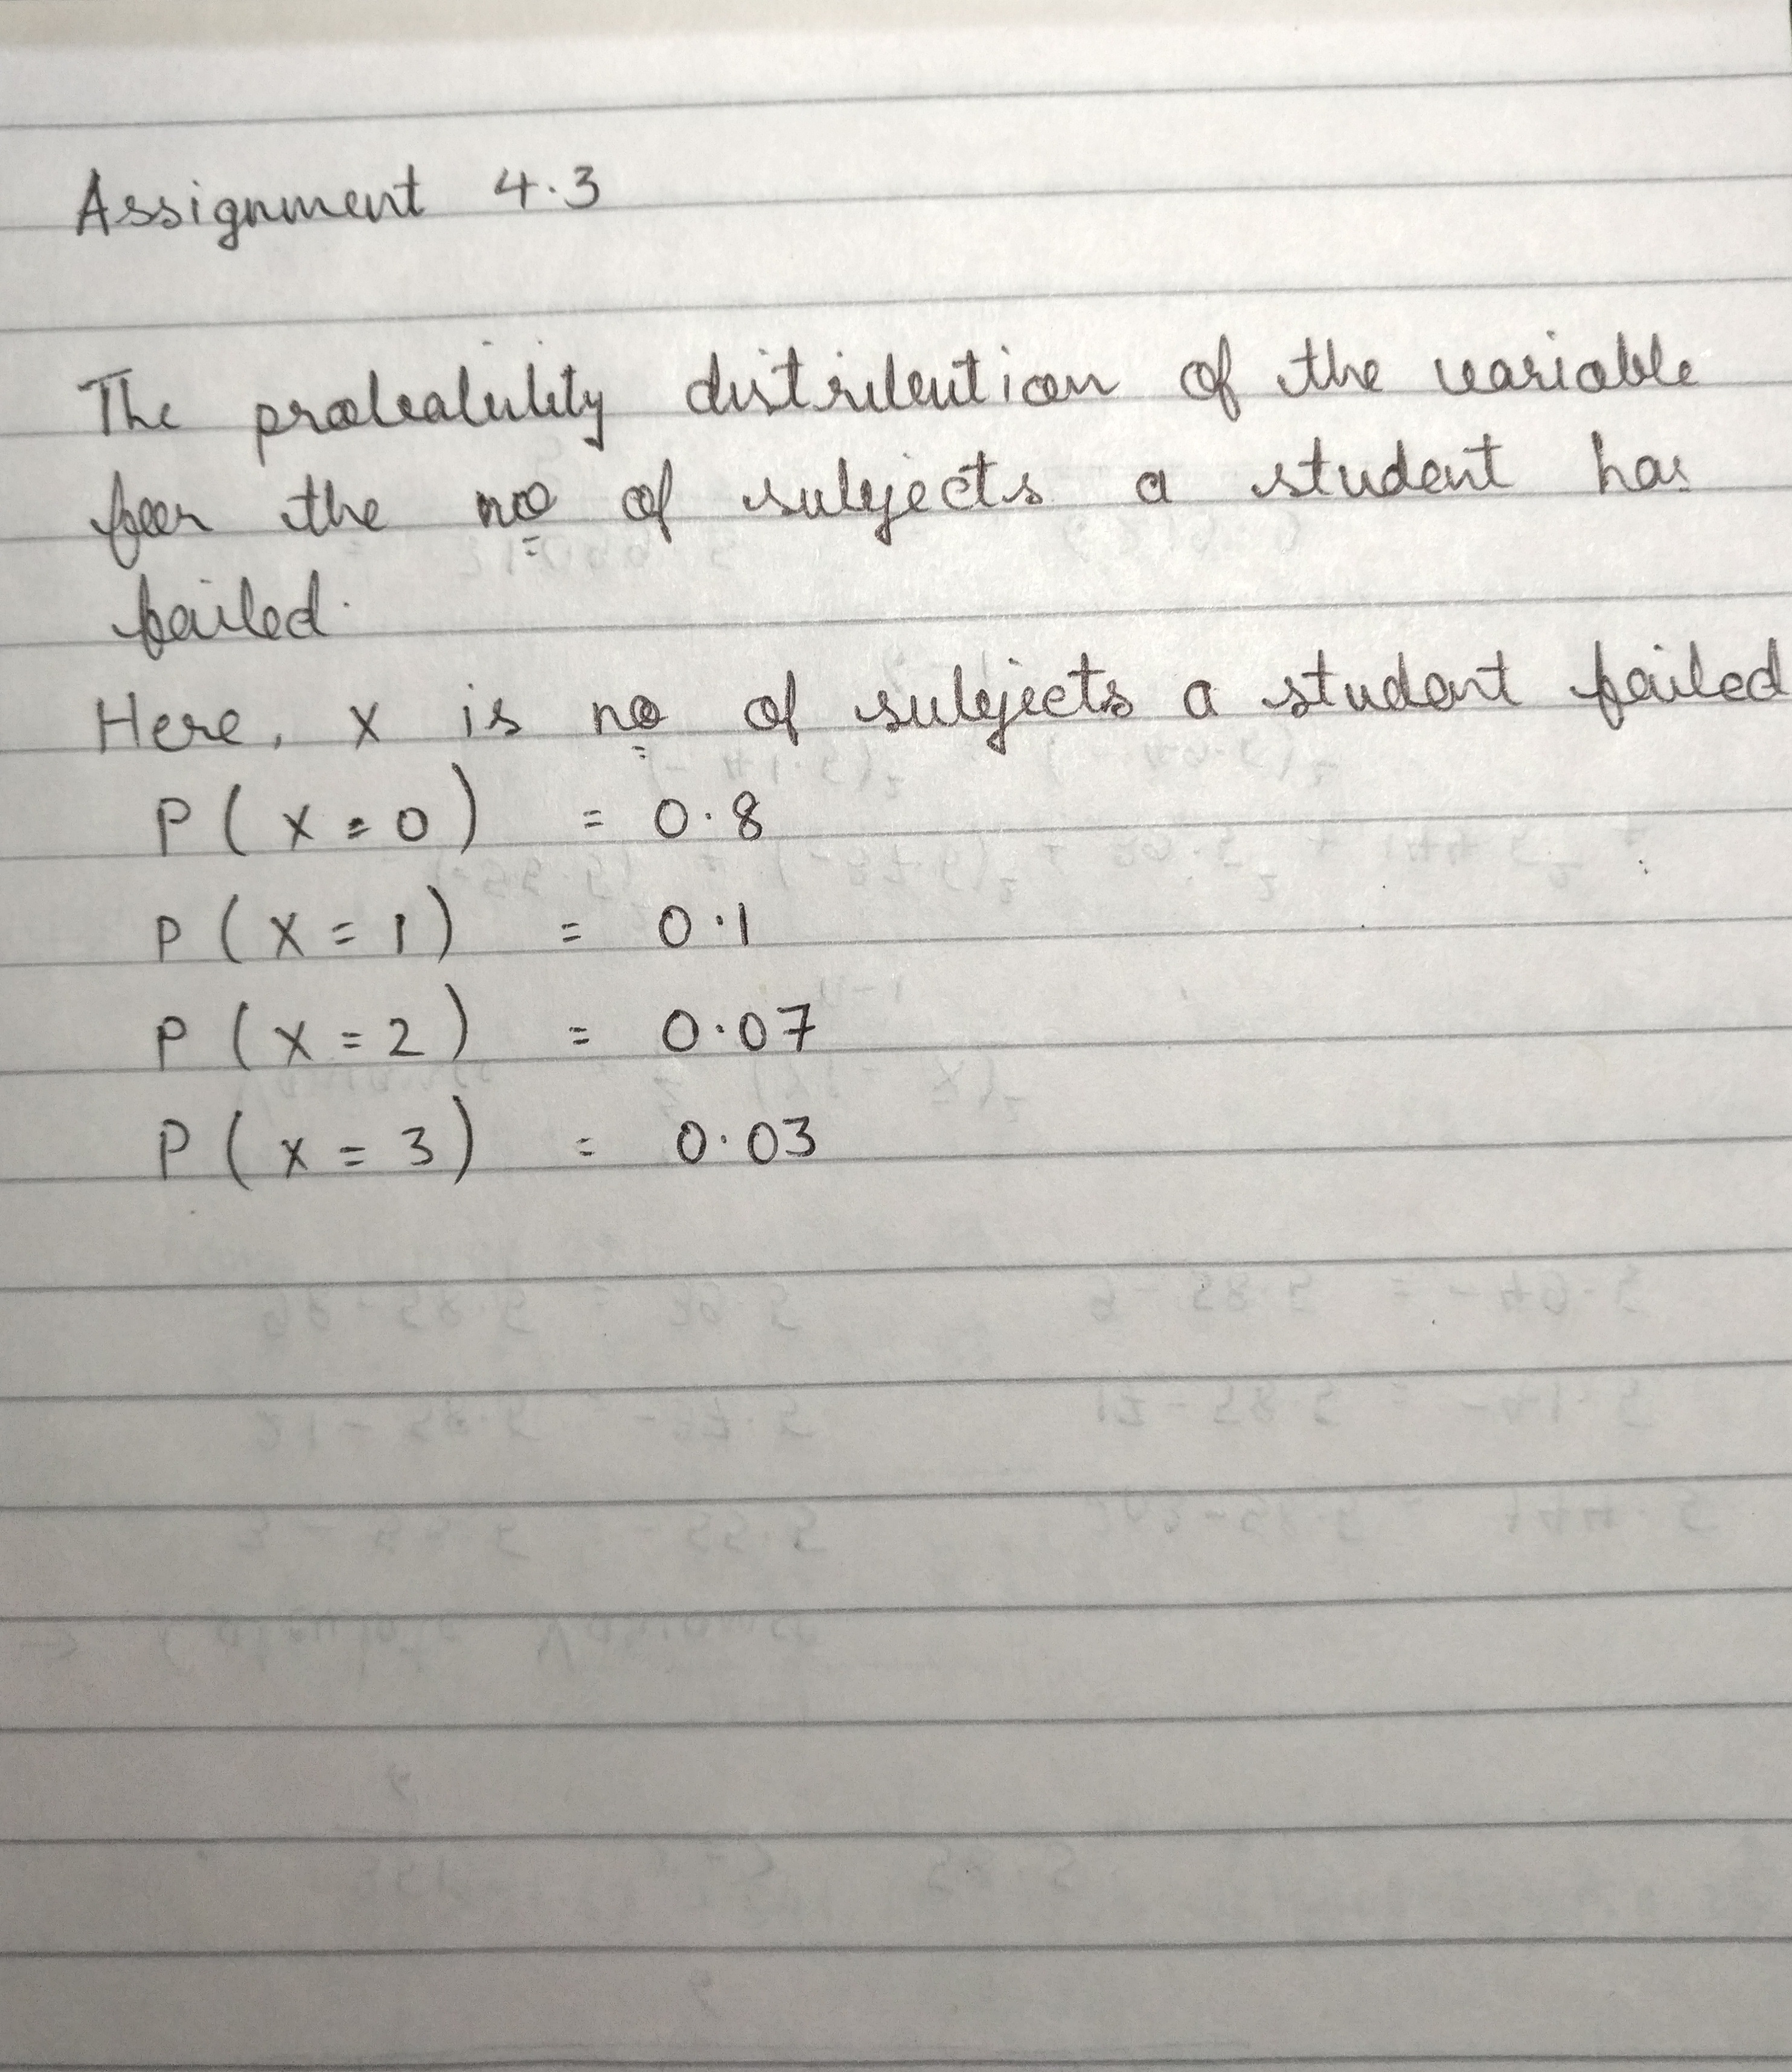 Assignment 4.3
The probability distribution of the variable
for the no of subjects a student has
failed.
Here, X is no of subjects a student failed
P ( X = 0 ) = 0.8
P ( X = 1 ) = 0.1
P ( X = 2 ) = 0.07
P ( X = 3 ) = 0.03